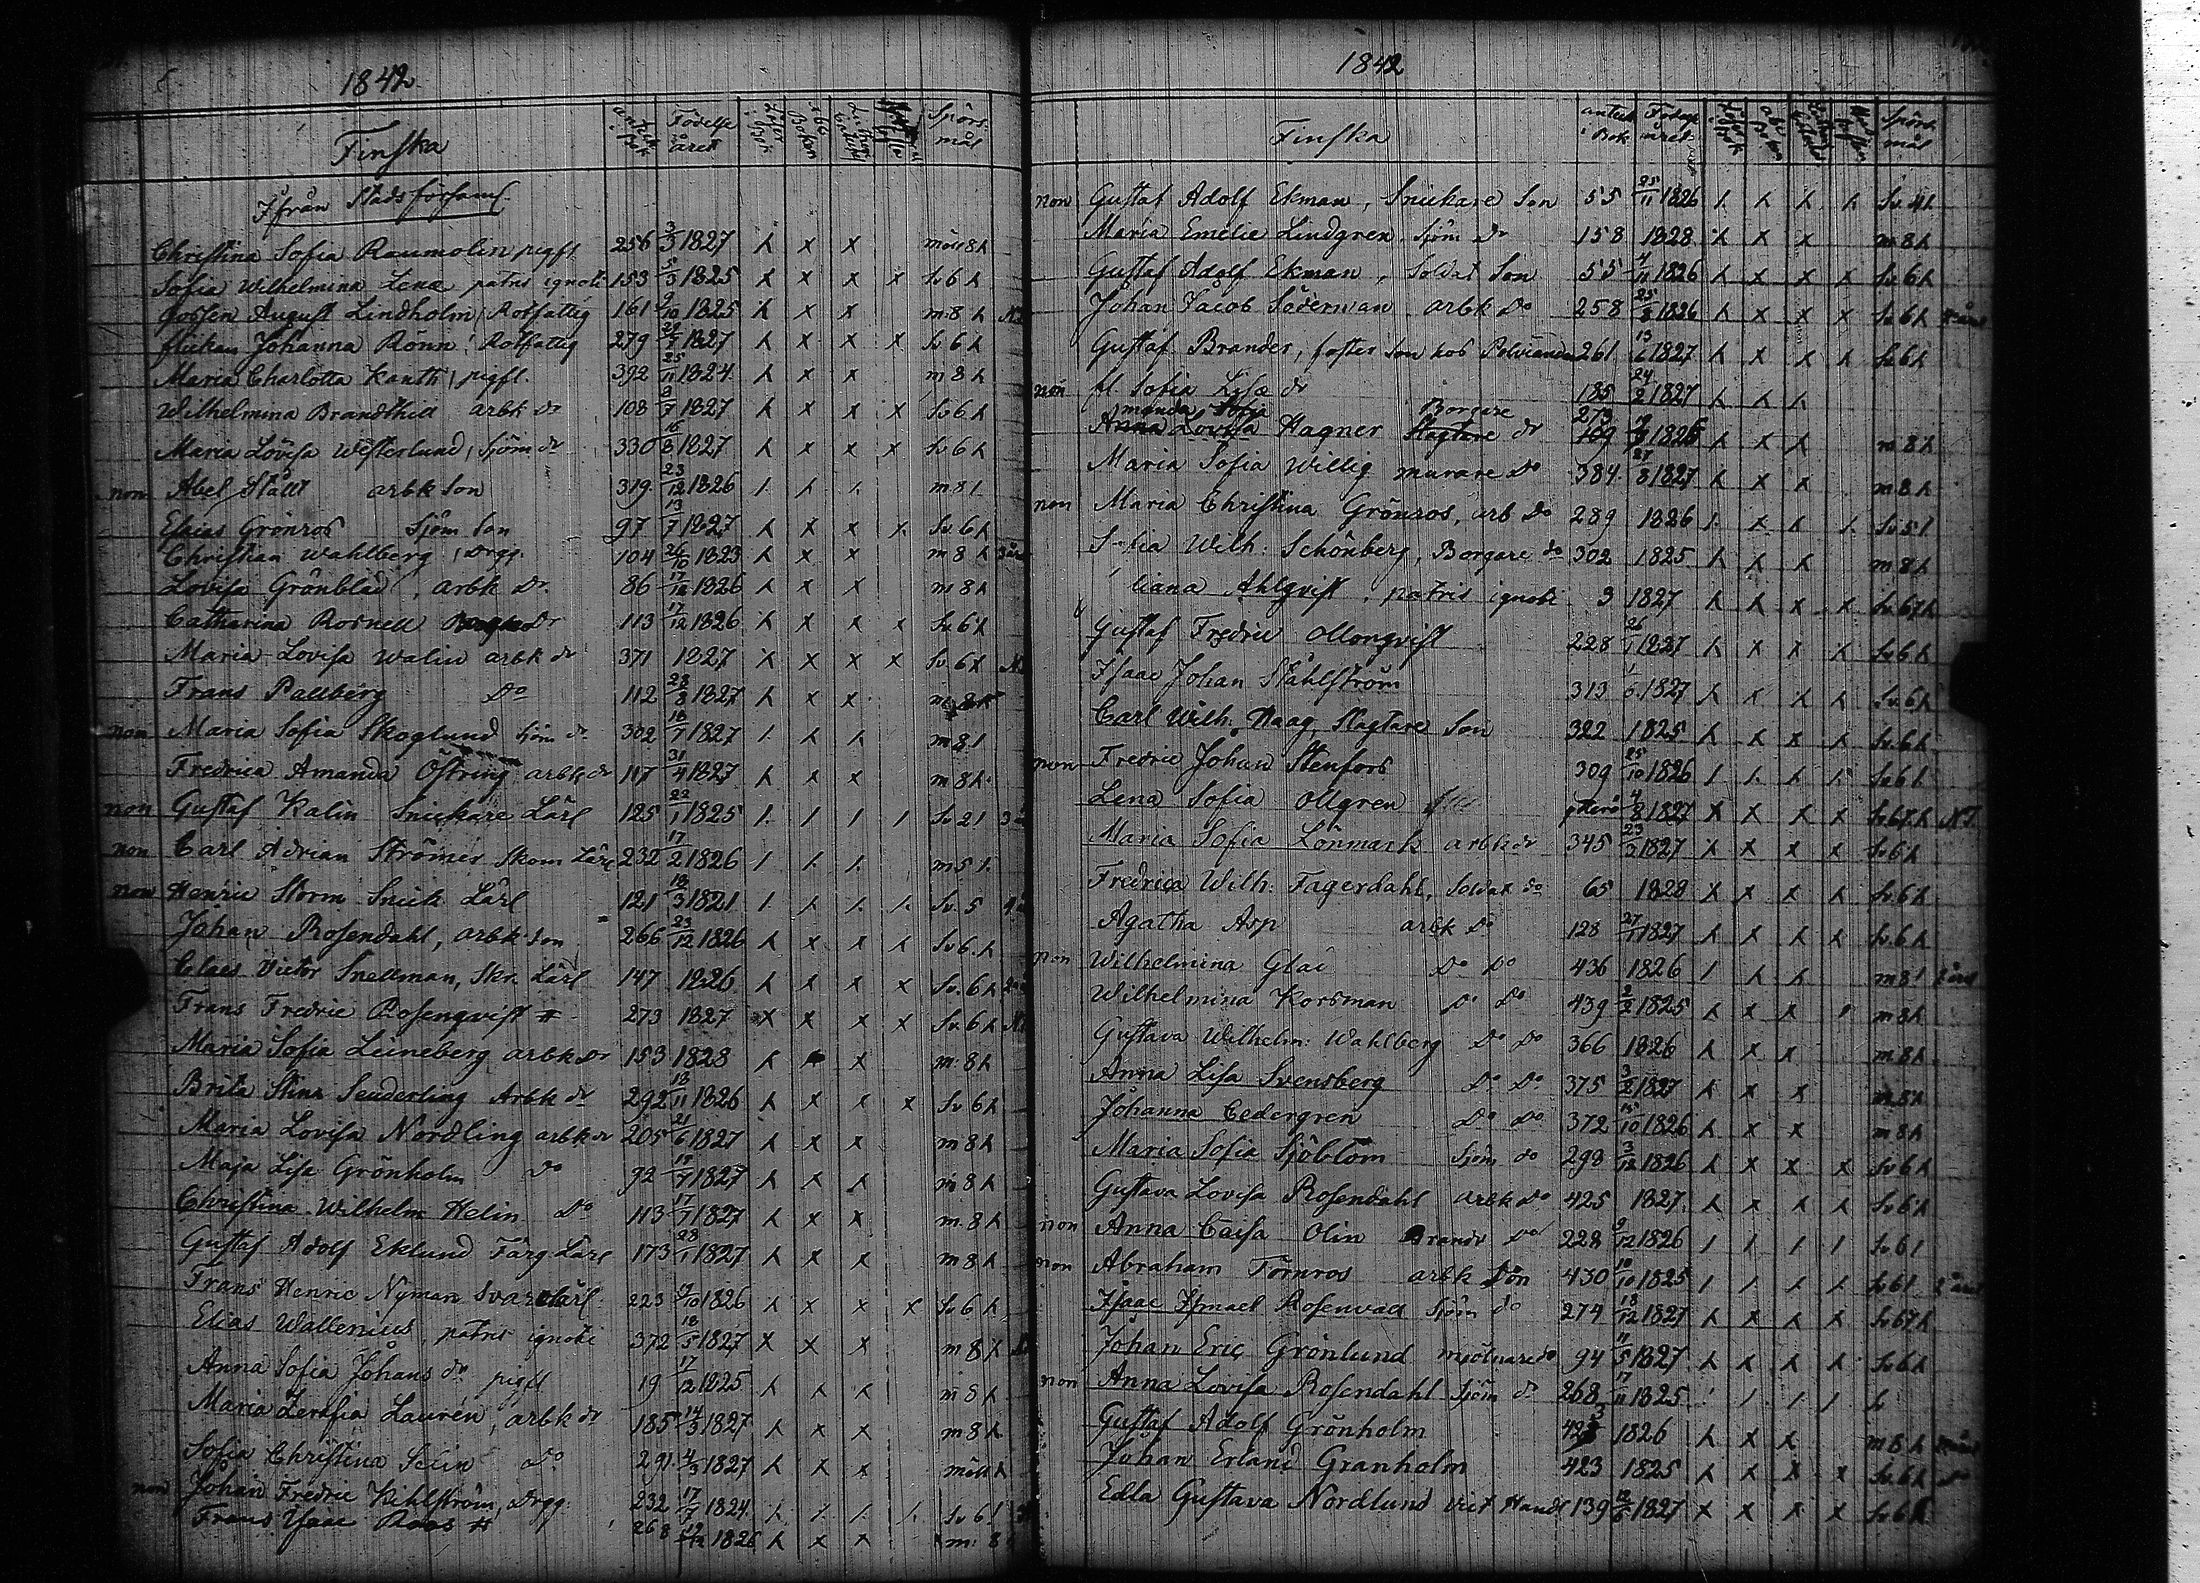 1842
Finska
Födelse året
Spörs mål
Ifrån Stadsförsaml.
Christina Sofia Raumolin pigfl. 256 3/3 1827 x x x m 8 x
Sofia Wilhelmina Lenæ patris ignoti 153 5/3 1825 x x x x Sv 6 x
gossen August Lindholm, Rotfattig 161 9/10 1825 x x x m 8 x
flickan Johanna Rönn, Rotfattig 279 1827 x x x x Sv 6 x
Maria Charlotta Kanth, pigfl. 392 25/11 1824 x x x m 8 x
Wilhelmina Brandthill arbk dr 108 1827 x x x x Sv 6 x
Maria Lovisa Westerlund, Sjöm dr 330 16/8 1827 x x x x Sv 6 x
non Abel Ståhl arbk Son 319 23/12 1826 / / / m 8 /
Elias Grönros Sjöm Son 97 13/7 1827 x x x x Sv 6 x
Christian Wahlberg, Drgg. 104 26/10 1823 x x x m 8 x
Lovisa Grönblad, arbk Dr 86 17/12 1826 x x x m 8 x
Catharina Rosnell dr 113 17/12 1826 x x x x Sv 6 x
Maria Lovisa Walin arbk dr 371 1827 x x x x Sv 6 x
Frans Pallberg Do 112 28/8 1827 x x x m 8 x
non Maria Sofia Skoglund Sjöm dr 302 18/7 1827 / / / m 8 /
Fredrica Amanda Östring arbk dr 117 31/4 1827 x x x m 8 x
non Gustaf Kalin Snickare Lärl 125 22/1 1825 / / / / Sv 2 /
non Carl Adrian Strömer Skom Lärl 232 17/2 1826 / / / m 5 /
non Henric Storm Snick Lärl 121 18/3 1821 / / / / Sv. 5
Johan Rosendahl, arbk Son 266 23/12 1826 x x x x Sv 6 x
Claes Victor Snellman, Skr. Lärl 147 1826 x x x x Sv. 6 x
Frans Fredric Rosenqvist # 273 1827 x x x x Sv. 6 x
Maria Sofia Leineberg arbk dr 153 1828 x x m. 8 x
Brita Stina Senderling Arbk dr 292 18/11 1826 x x x x Sv 6 x
Maria Lovisa Nordling arbk dr 205 21/6 1827 x x x m 8 x
Maja Lisa Grönholm Do 92 1827 x x x m 8 x
Christina Wilhelm Helin Do 113 17/7 1827 x x x m. 8 x
Gustaf Adolf Eklund Färg Lärl 173 28/1 1827 x x x m 8 x
Frans Henric Nyman Svarf lärl 223 1826 x x x x Sv 6 x
Elias Wallenius, patris ignoti 372 18/5 1827 x x x m 8 x
Anna Sofia Johans dr pigfl 19 17/12 1825 x x x m 8 x
Maria Serafia Lauren, arbk dr 185 14/3 1827 x x x m 8 x
Sofia Christina Selin do 291 4/3 1827 x x x
non Johan Fredric Kihlström, Drgg. 232 17/7 1824 / / / / Sv 6 /
Frans Isaac Roos # 268 1826 x x x m. 8
1842
Finska
Spörs mål
non Gustaf Adolf Ekman, Snickare Son 55 25/11 1826 / / / / Sv. 4 x
Maria Emelie Lindgren, Sjöm Dr 158 1828 x x x m 8 x
Gustaf Adolf Ekman, Soldat Son 55 4/11 1826 x x x x Sv. 6 x
Johan Jacob Söderman arbk Do 258 25/8 1826 x x x x Sv 6 x
Gustaf Brander, foster Son hos 261 13/6 1827 x x x x Sv 6 x
non fl Sofia Lisæ dr 185 24/2 1827 x x x
Amanda Sofia Hagner Borgare dr 273 1826 x x x m 8 x
Maria Sofia Willig murare Do 384 27/8 1827 x x x m 8 x
non Maria Christina Grönros, arb Do 289 1826 / x x / Sv 5 /
Sofia Wilh: Schönberg, Borgare do 302 1825 x x x m 8 x
liana Ahlqvist, patris ignoti 3 1827 x x x x Sv. 67 x
Gustaf Fredric Ollonqvist 228 26/1 1827 x x x x Sv 6 x
Isaac Johan Ståhlström 313 1/6 1827 x x x x Sv 6 x
Carl Wilh. Haag, Slagtare Son 322 1825 x x x x Sv 6 x
non Fredric Johan Stenfors 309 25/10 1826 / / / / Sv 6 /
Lena Sofia Ollgren 4/8 1827 x x x x Sv 67 x N.T.
Maria Sofia Lönmark arbk dr 345 23/3 1827 x x x x Sv 6 x
Fredrica Wilh: Fagerdahl, Soldat do 65 1828 x x x x Sv. 6 x
Agatha Asp arbk Do 128 27/1 1827 x x x x Sv. 6 x
non Wilhelmina Glad Do Do 436 1826 / x x m 8 /
Wilhelmina Korsman Do Do 439 2/2 1825 x x x m 8 x
Gustava Wilhelm: Wahlberg Do Do 366 1826 x x x m 8 x
Anna Lisa Svensberg Do Do 375 3/2 1827 x x x m 8 x
Johanna Cedergren Do Do 372 15/10 1826 x x x m 8 x
Maria Sofia Sjöblom Sjöm do 298 3/12 1826 x x x x Sv 6 x
Gustava Lovisa Rosendahl arbk do 425 1827 x x x x Sv 6 x
non Anna Caisa Olin Do 228 9/12 1826 / / / / Sv 6 /
non Abraham Törnros arbk Son 430 10/10 1825 / / / / Sv 6 /
Isaac Ismael Rosenvall Sjöm do 274 18/12 1827 x x x x Sv 67 x
Johan Eric Grönlund mjölnare do 94 11/5 1827 x x x x Sv 6 x
non Anna Lovisa Rosendahl Sjöm dr 268 17/11 1825 / / / /
Gustaf Adolf Grönholm 423 1826 x x x m 8 x
Johan Erland Granholm 423 1825 x x x x Sv. 6 x do
Edla Gustava Nordlund Vict Handl 139 12/6 1827 x x x x Sv 6 x